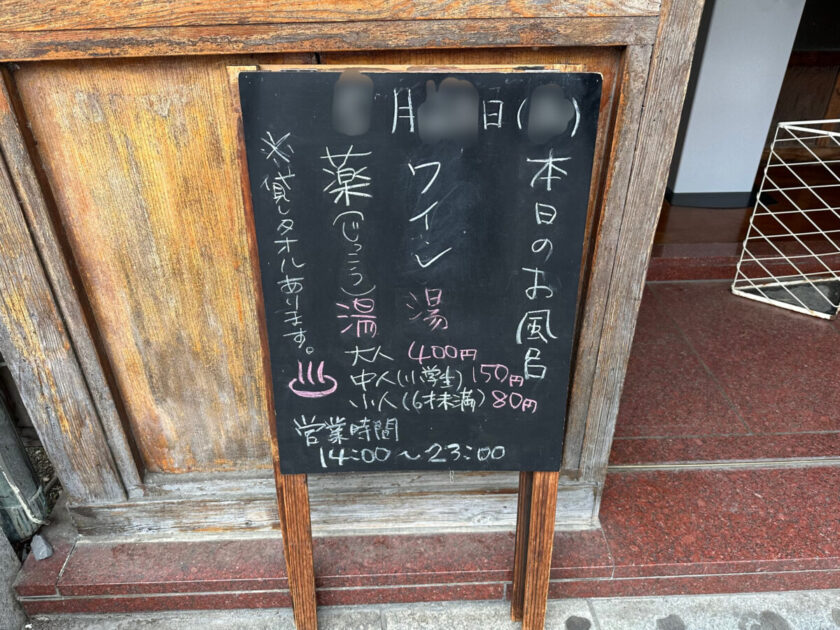 月 日( )
本日のお風呂
ワイン湯
薬(じっこう)湯
※貸しタオルあります。
大人 400円
中人(小学生) 150円
小人(6才未満) 80円
営業時間
14:00～23:00